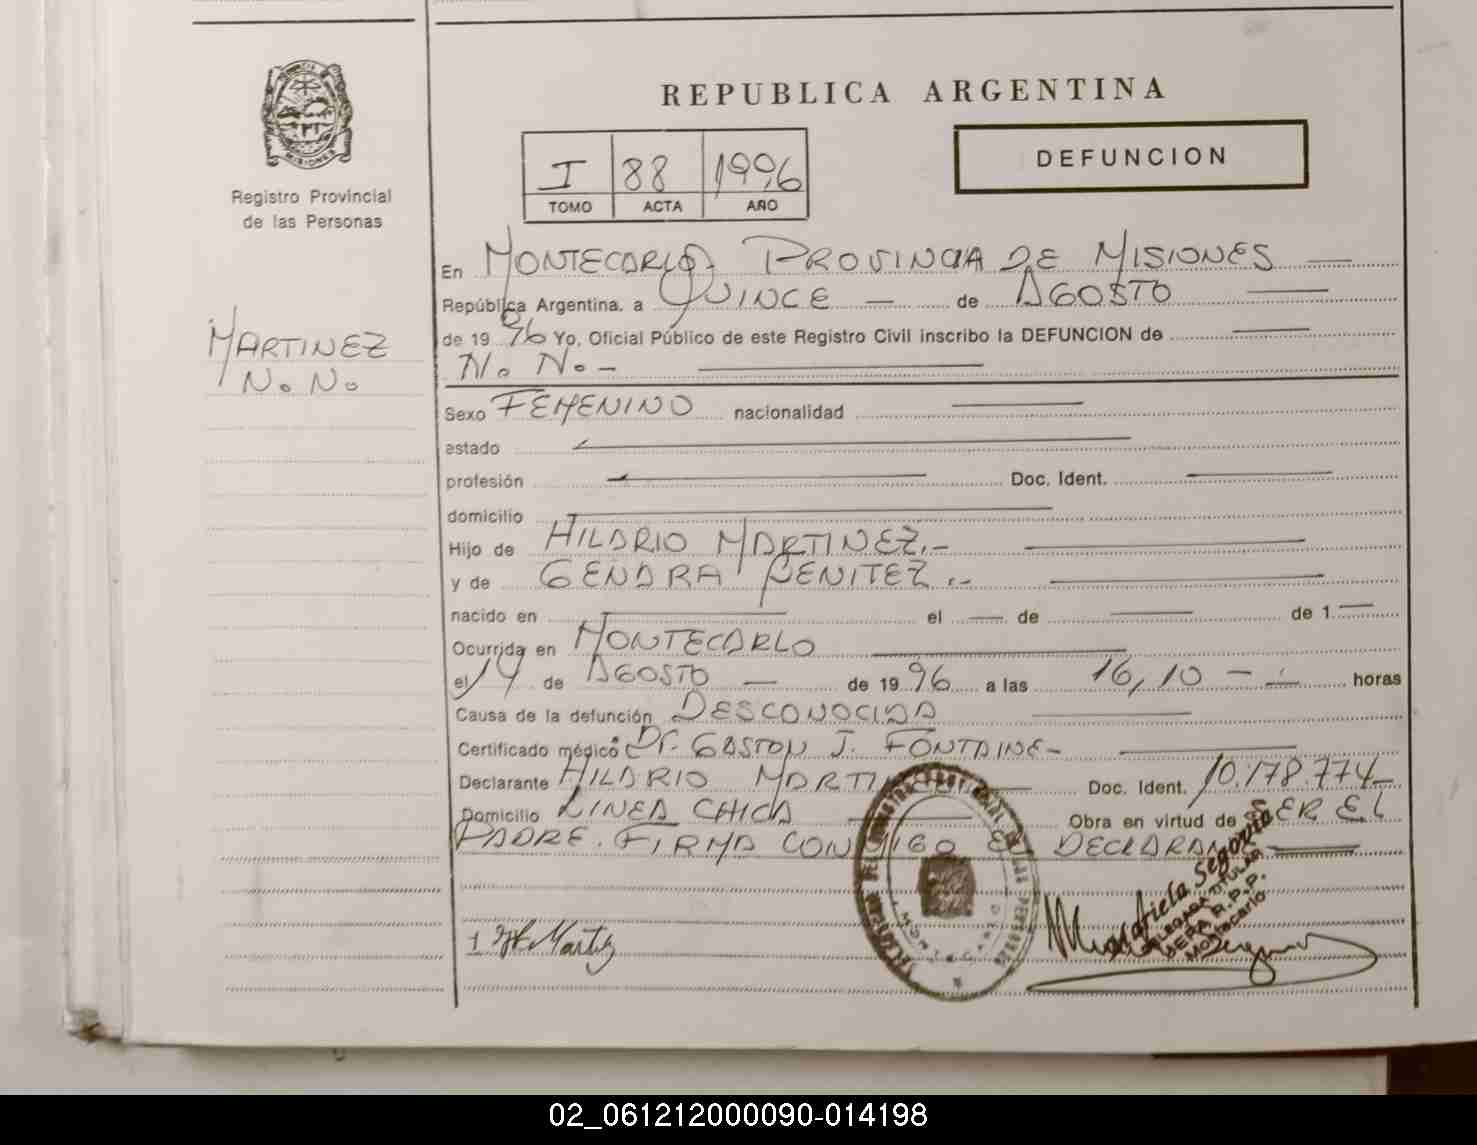 REPUBLICA ARGENTINA
DEFUNCION
I 88 1996
TOMO ACTA AÑO
MISIONES
Registro Provincial
de las Personas
MARTINEZ
N. N.
En MONTECARLO, PROVINCIA DE MISIONES
República Argentina, a QUINCE — de AGOSTO
de 19 96 Yo, Oficial Público de este Registro Civil inscribo la DEFUNCION de
N. N. -
Sexo FEMENINO nacionalidad
estado
profesión Doc. Ident.
domicilio
Hijo de HILARIO MARTINEZ.-
y de GENARA BENITEZ.-
nacido en el — de — de 1 —
Ocurrida en MONTECARLO
el 14 de AGOSTO — de 19 96 a las 16,10 - horas
Causa de la defunción DESCONOCIDA
Certificado médico Dr. GASTON J. FONTAINE-
Declarante HILARIO Doc. Ident. 10.178.774-
Domicilio LINEA CHICA Obra en virtud de SER EL
PADRE. FIRMA CONMIGO EL
Mardiela Segovia
DELEGADA TITULAR
R.P.P.
Montecarlo
02_061212000090-014198